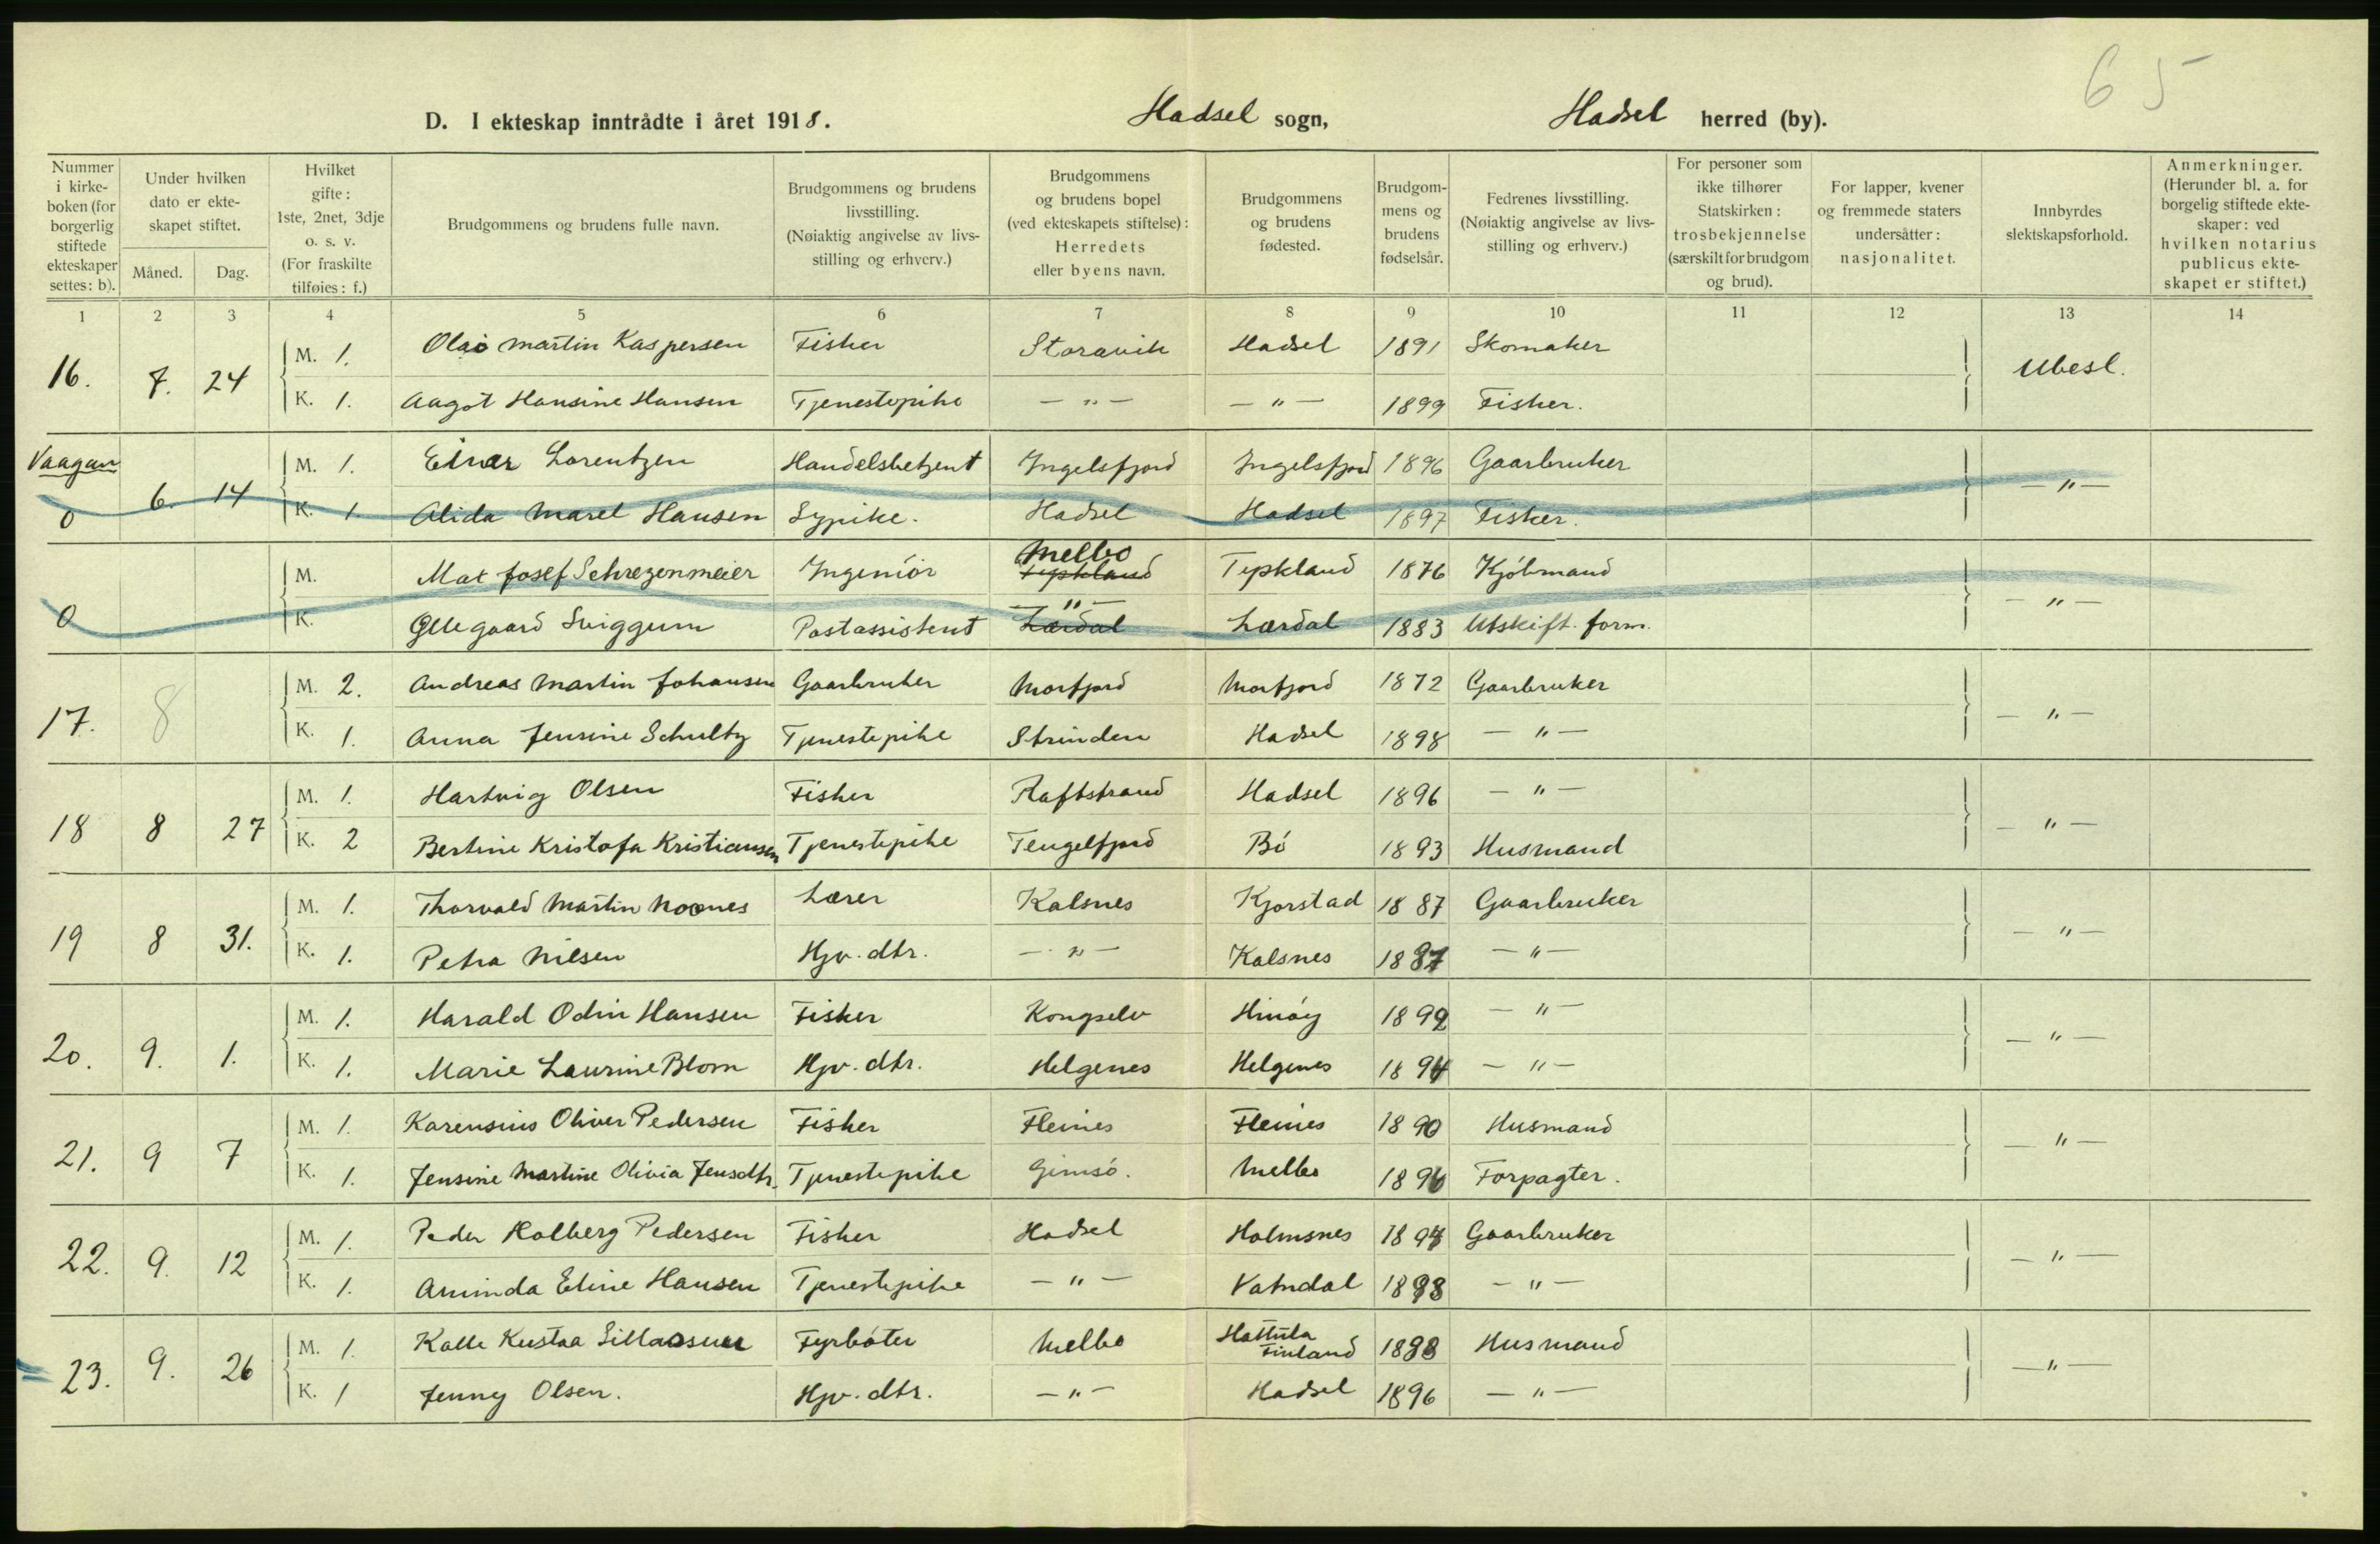 65
D. I ekteskap inntrådte i året 1918. Hadsel sogn, Hadsel herred (by).
Nummer i kirkeboken (for borgerlig stiftede ekteskaper settes: b).
Under hvilken dato er ekteskapet stiftet.
Måned. Dag.
Hvilket gifte: 1ste, 2net, 3dje o. s. v. (For fraskilte tilføies: f.)
Brudgommens og brudens fulle navn.
Brudgommens og brudens livsstilling. (Nøiaktig angivelse av livsstilling og erhverv.)
Brudgommens og brudens bopel (ved ekteskapets stiftelse): Herredets eller byens navn.
Brudgommens og brudens fødested.
Brudgommens og brudens fødselsår.
Fedrenes livsstilling. (Nøiaktig angivelse av livsstilling og erhverv.)
For personer som ikke tilhører Statskirken: trosbekjennelse (særskilt for brudgom og brud).
For lapper, kvener og fremmede staters undersåtter: nasjonalitet.
Innbyrdes slektskapsforhold.
Anmerkninger. (Herunder bl. a. for borgelig stiftede ekteskaper: ved hvilken notarius publicus ekteskapet er stiftet.)
1 2 3 4 5 6 7 8 9 10 11 12 13 14
16. 7. 24 M. 1. Olai Martin Kaspersen Fisker Storavik Hadsel 1891 Skomaker Ubesl.
K. 1. Aagot Hansine Hansen Tjenestepike — " — — " — 1899 Fisker.
Vaagan
0 6. 14 M. 1. Einar Lorentzen Handelsbetjent Ingelsfjord Ingelsfjord 1896 Gaarbruker — " —
K. 1. Alida Marel Hansen Sypike. Hadsel Hadsel 1897 Fisker.
0 M. Max Josef Schrezenmeier Ingeniör Melbo Typkland Typkland 1876 Kjöbmand — " —
K. Gllegaard Sviggum Postassistent — " — Lærdal Lærdal 1883 Utskift. form.
17. 8 M. 2. Andreas Martin Johansen Gaarbruker Morfjord Morfjord 1872 Gaarbruker — " —
K. 1. Anna Jensine Schultz Tjenestepike Strinden Hadsel 1898 — " —
18 8 27 M. 1. Hartvig Olsen Fisker Raftstrand Hadsel 1896 — " — — " —
K. 2 Bertine Kristofa Kristiansen Tjenestepike Tengelfjord Bö 1893 Husmand
19 8 31. M. 1. Thorvald Martin Moones Lærer Kalsnes Kjorstad 1887 Gaarbruker — " —
K. 1. Petra Nilsen Hjv. dtr. — " — Kalsnes 1887 — " —
20. 9. 1. M. 1. Harald Odin Hansen Fisker Kongselv Hinöy 1892 — " — — " —
K. 1. Marie Laurine Blom Hjv. dtr. Helgenes Helgenes 1894 — " —
21. 9 7 M. 1. Karensius Oliver Pedersen Fisker Fleines Fleines 1890 Husmand — " —
K. 1. Jensine Martine Olivia Jensdtr. Tjenestepike Gimsö. Melbo 1896 Forpagter.
22. 9. 12 M. 1. Peder Holberg Pedersen Fisker Hadsel Holmsnes 1894 Gaarbruker — " —
K. 1. Arminda Eline Hansen Tjenestepike — " — Vatndal 1898 — " —
23. 9. 26 M. 1. Kalle Kustaa Sillaasuu Fyrböter Melbo Hattula Finland 1898 Husmand — " —
K. 1 Jenny Olsen. Hjv. dtr. — " — Hadsel 1896 — " —